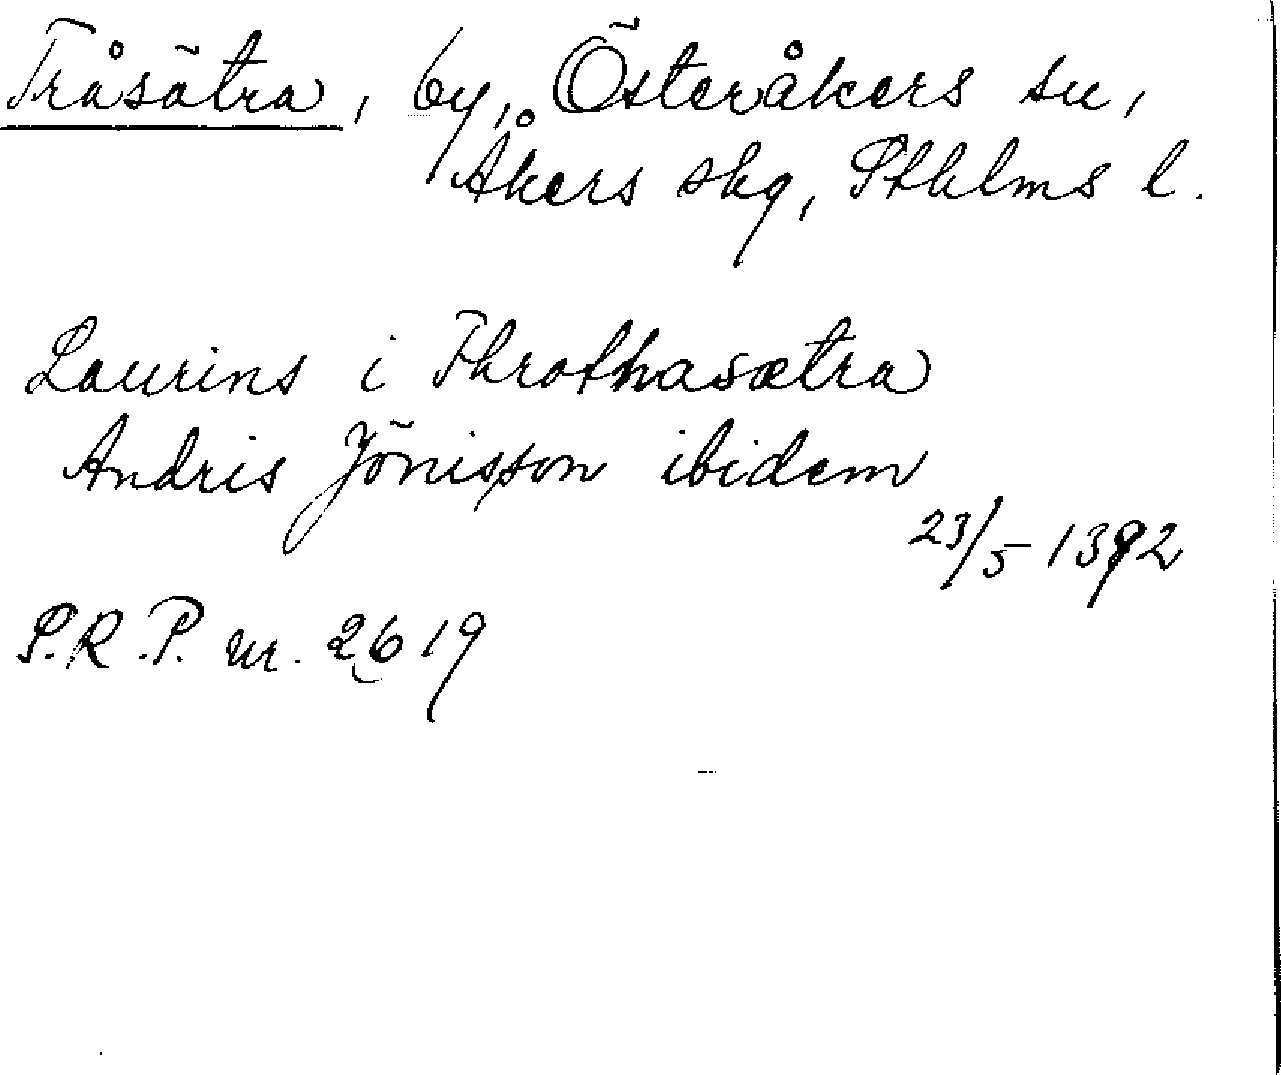 Tråsätra, by, Österåkers sn,
Åkers skg, Sthlms l.
Laurins i Throthasætra
Andris Jönisson ibidem
23/5 1392
S.R.P. nr. 2619